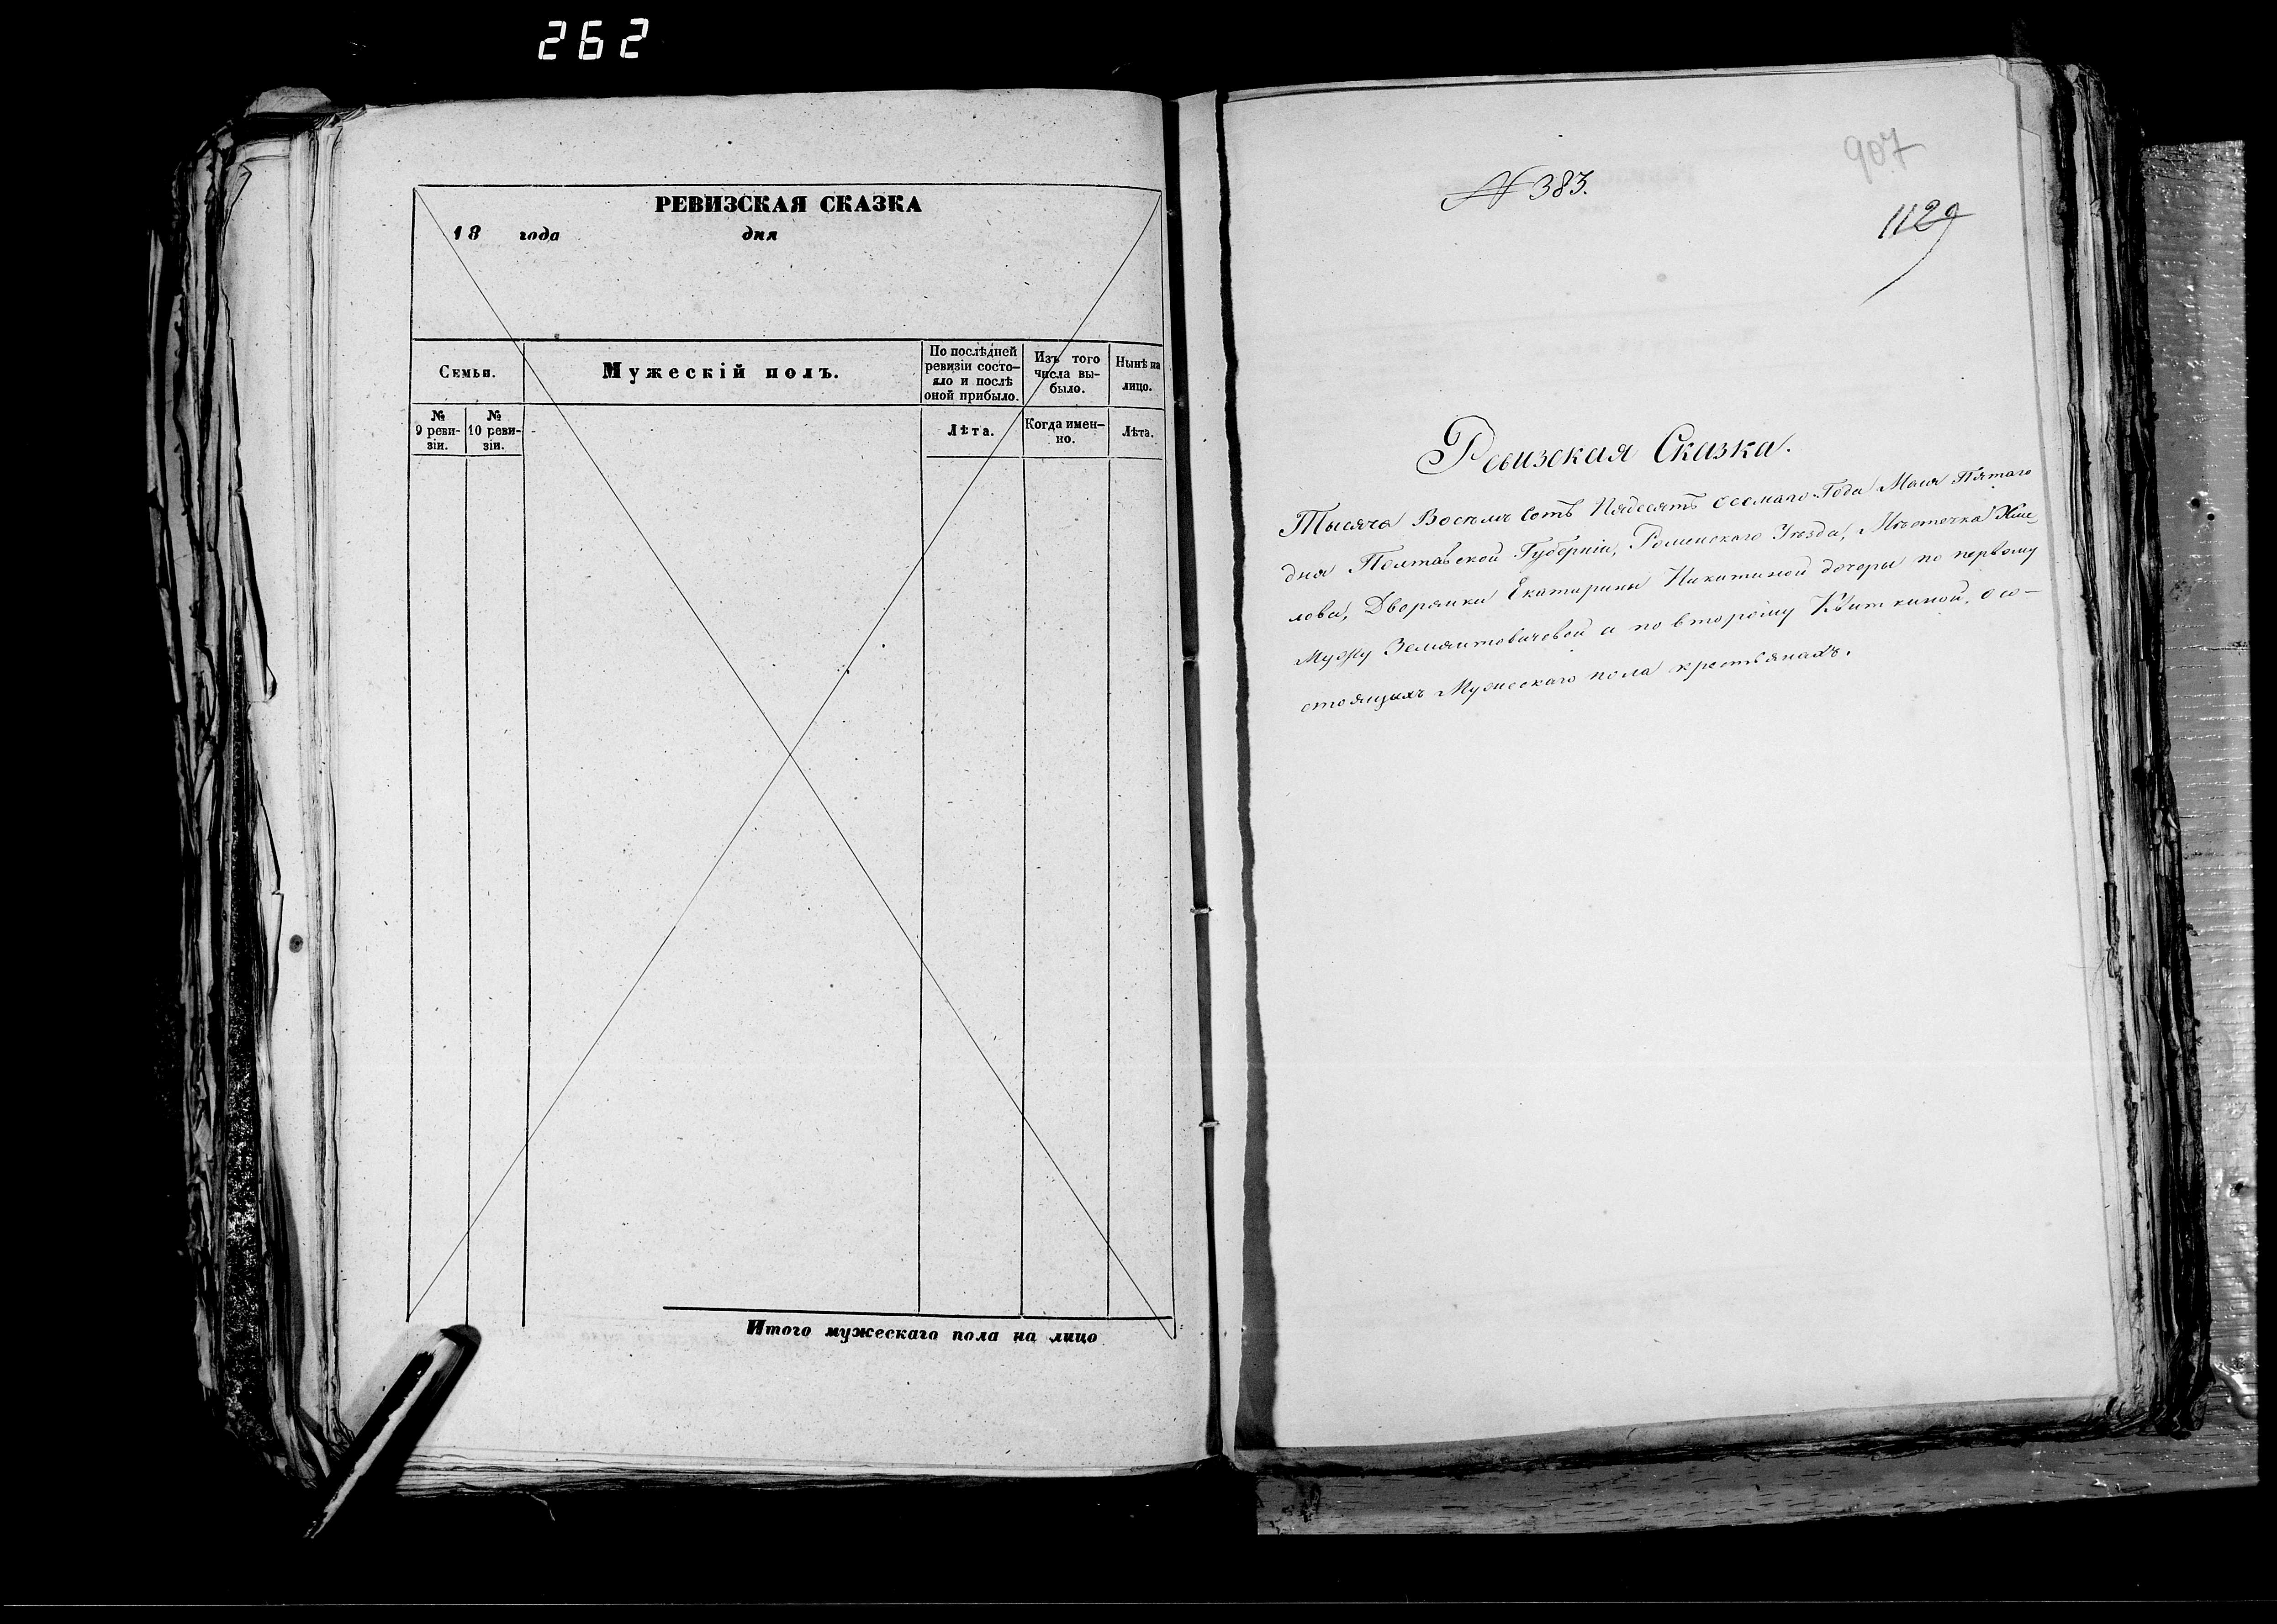 262
РЕВИЗСКАЯ СКАЗКА
18 года дня
Семьи.
Мужескій полъ.
По послѣдней
ревизіи состо-
яло и послѣ
оной прибыло.
Изъ того
числа вы-
было.
Нынѣ на
лицо.
№
9 реви-
зіи.
№
10 реви-
зіи.
Лѣта.
Когда имен-
но.
Лѣта.
Итого мужескаго пола на лицо
907
N 383.
1129
Ревизская Сказка.
Тысяча Восемь Сотъ Пядесятъ осемаго Года Маія Пятаго
дня Полтавской Губерніи, Роменского Уезда, Мѣстечка Хме-
лова, Дворянки Екатерины Никитиной дочеры по первому
Мужу а по второму Квиткиной, о со-
стоящихъ Мужескаго пола крестьянахъ.